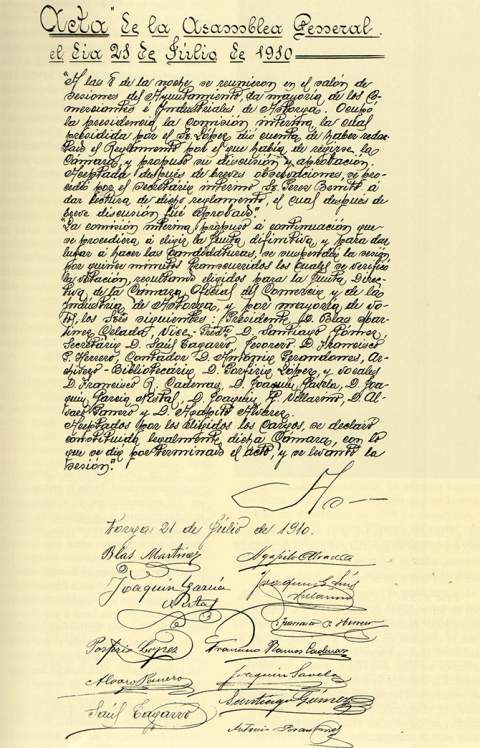 Acta de la Asamblea General.
el dia 21 de Júlio de 1910
"A las 8 de la noche se reunieron en el salón de
sesiones del Ayuntamiento, la mayoria de los Co-
merciantes é Industriales de Astorga. Ocupó
la presidencia la Comisión interina, la cual
presidida por el Sr. López, dió cuenta de haber redac-
tado el Reglamento por el que habia de regirse la
Cámara y propuso su discusión y aprobación.
Aceptada después de breves observaciones, se pro-
cedió por el Secretário interino Sr. Perez Benito á
dar lectura de dicho reglamento, el cual después de
breve discusión fué aprobado."
"La comisión interina, propuso á continuación que
se procediera á eligir la Junta difinitiva y para dar
lugar á hacer las candidaturas, se suspendió la sesión
por quince minutos, transcurridos los cuales se verificó
la votación resultando elegidos para la Junta Direc-
tiva de la Cámara Oficial del Comercio y de la
Industria de Astorga, y por mayoria de vo-
tos, los Sres siguientes: President, D. Blas Mar-
tinez Celada, Vice-Presdte D. Santiago Gómez,
Secretário D. Saúl Tagarro, Tesorero D. Francisco
P. Herrero, Contador D. Antonio
Bibliotecário D. Porfirio López, y vocales
D. Francisco R. Cadenas, D. Joaquin Savela, D. Joa-
quin Garcia Nistal, D. Joaquin Villarino, D. Al-
varo Romero y D. Agapito
Aceptados por los eligidos los cargos, se declaró
constituida legalmente dicha Cámara, con lo
que se dió por terminado el acto, y se levantó la
sesión."
21 de Júlio de 1910.
Blas Martinez Agapito
Joaquin Garcia Nistal Joaquin
Villarino
Francisco P. Herrero
Porfirio López Francisco Ramos Cadenas
Alvaro Romero Joaquin Savela
Saúl Tagarro Santiago Gómez
Antonio